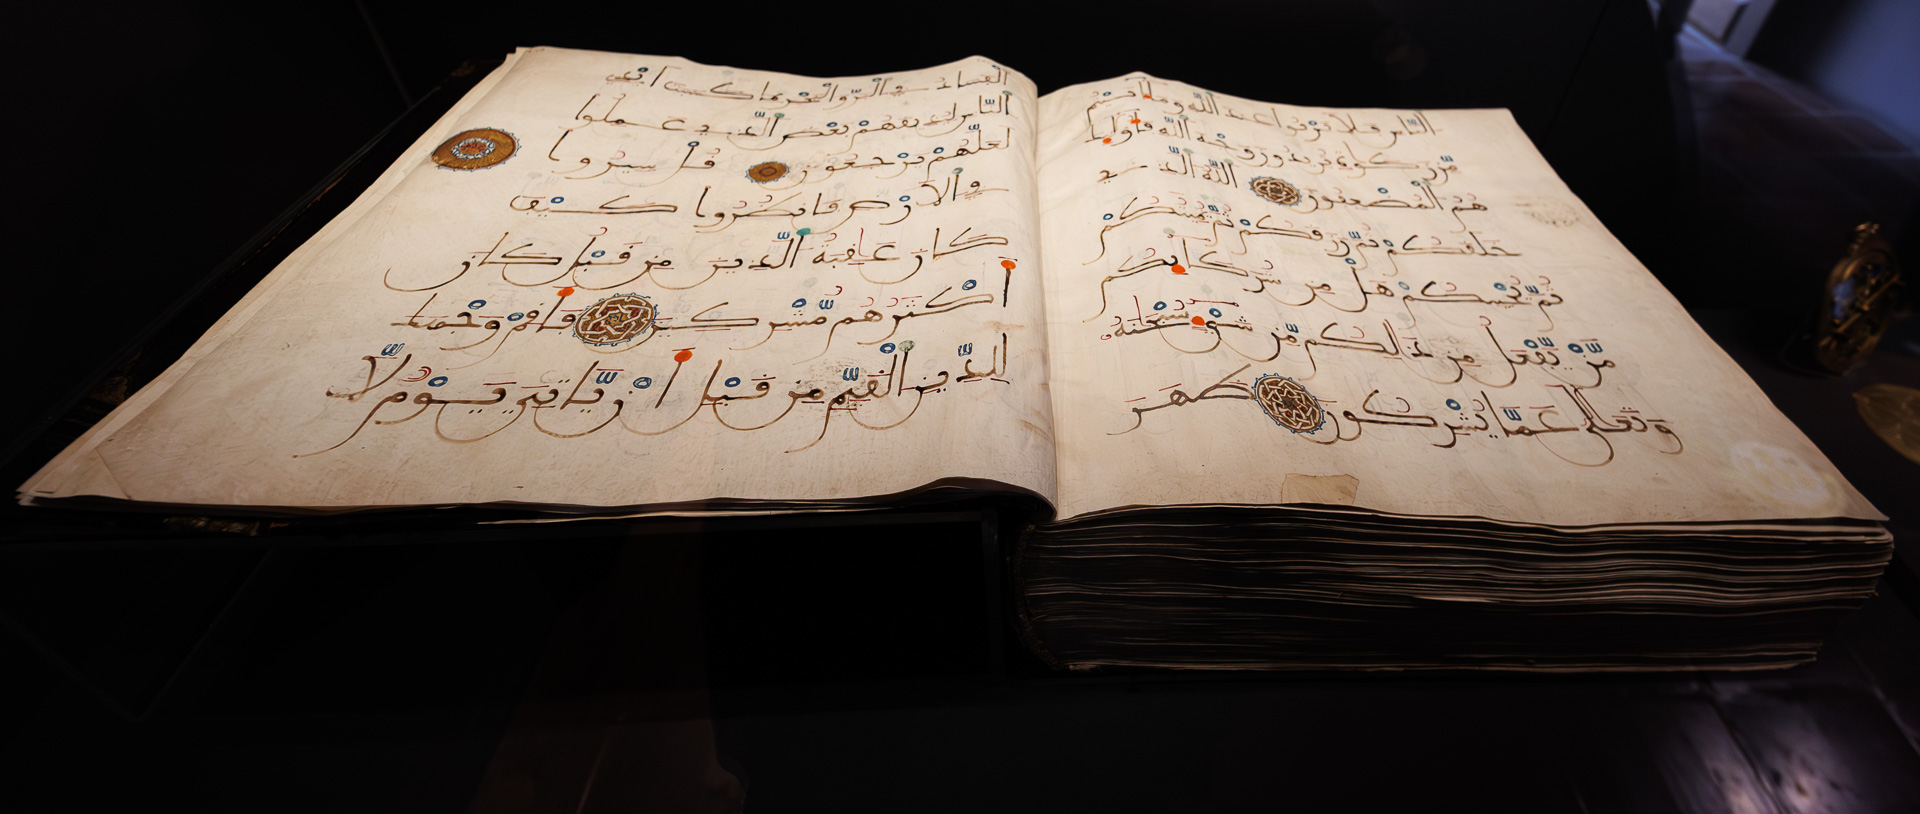 الناس فلا يربوا عند الله وما ءاتيتم
من زكوة تريدون وجه الله فأولئك
هم المضعفون الله الذي
خلقكم ثم رزقكم ثم يميتكم
ثم يحييكم هل من شركائكم
من يفعل من ذلكم من شيء سبحنه
وتعلى عما يشركون ظهر
الفساد في البر والبحر بما كسبت أيدي
الناس ليذيقهم بعض الذي عملوا
لعلهم يرجعون قل سيروا
في الأرض فانظروا كيف
كان عقبة الذين من قبل كان
أكثرهم مشركين فأقم وجهك
للدين القيم من قبل أن يأتي يوم لا